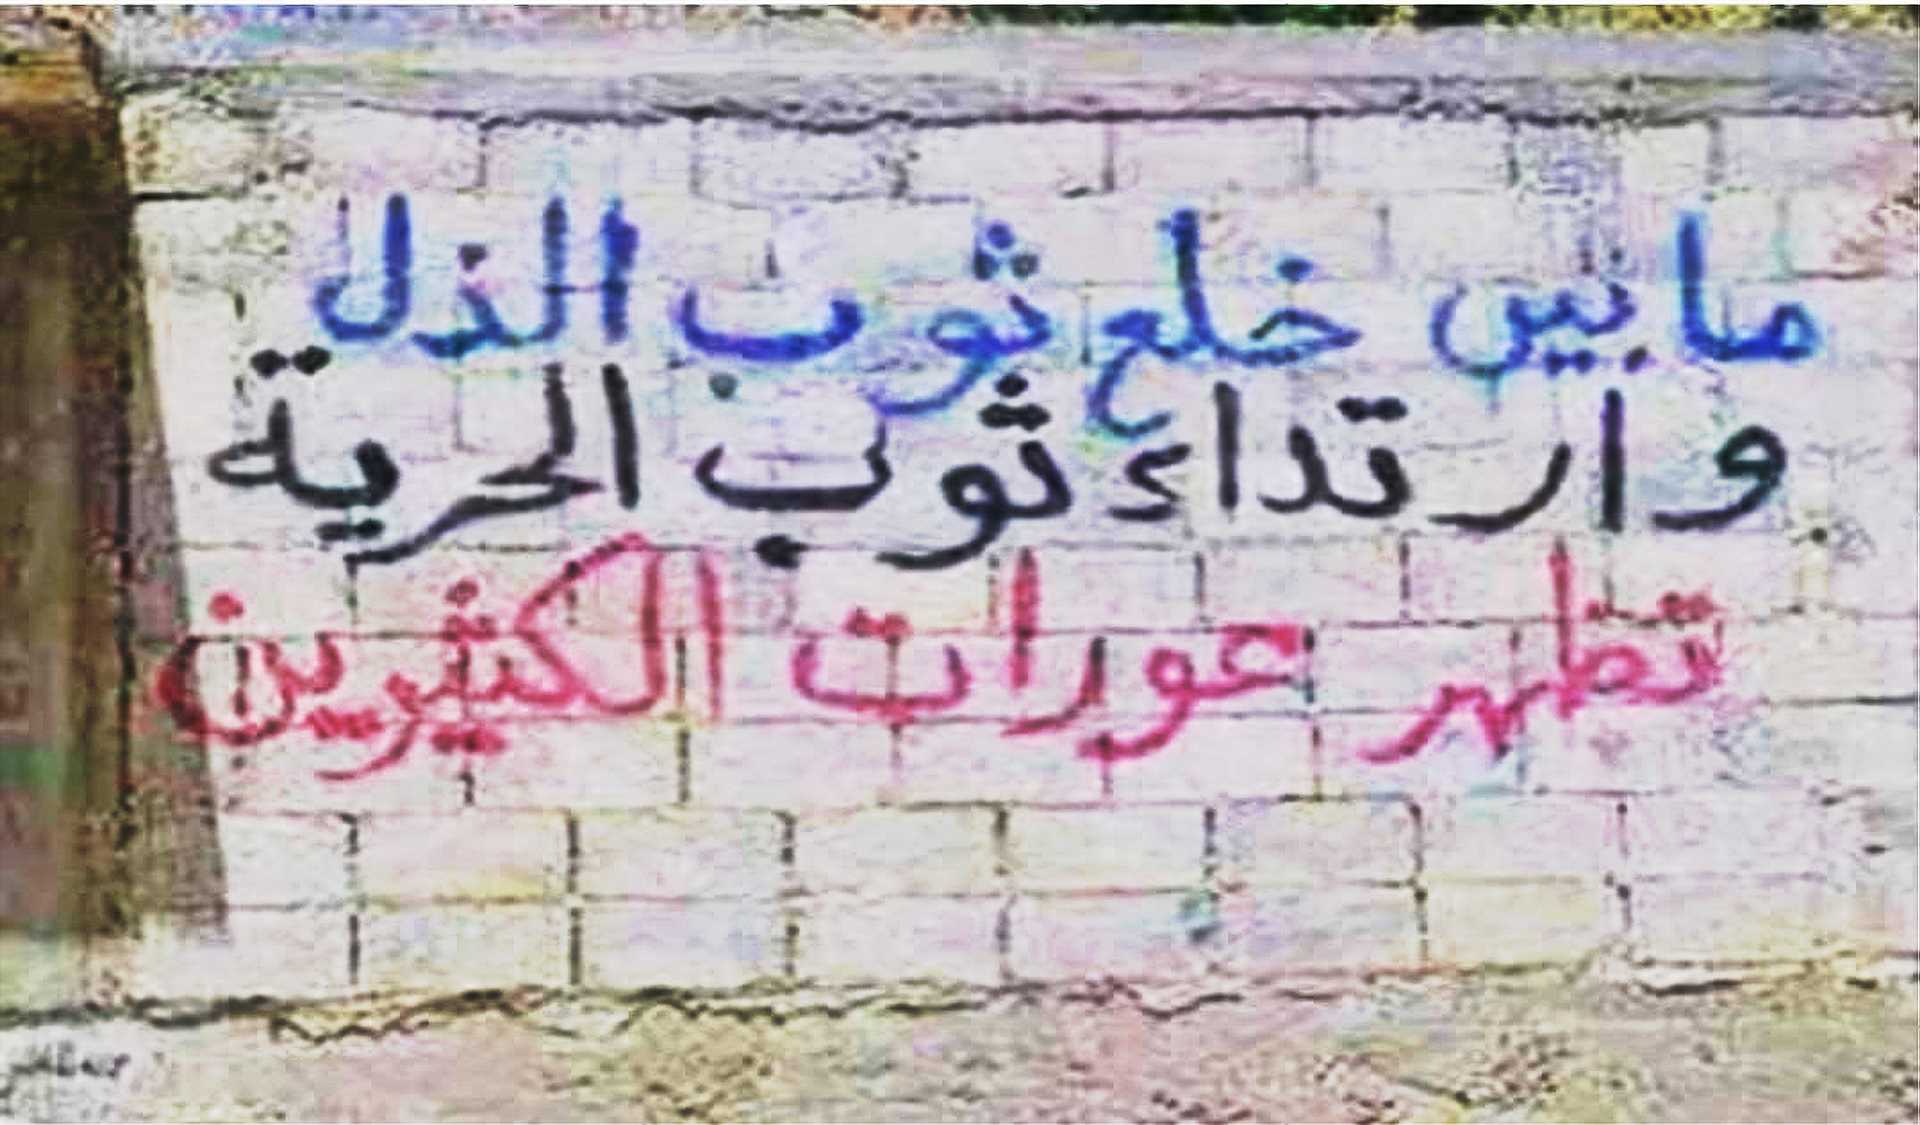 ما بين خلع ثوب الذل
وارتداء ثوب الحرية
تظهر عورات الكثيرين